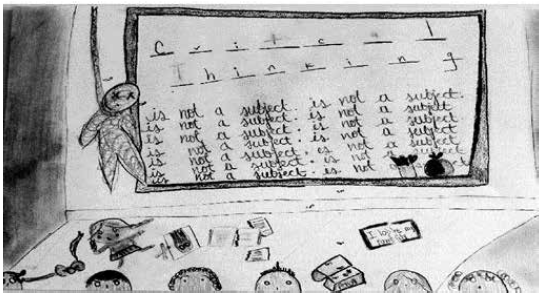 C r i t c a l
T h i n k i n g
is not a subject. is not a subject.
is not a subject. is not a subject.
is not a subject. is not a subject.
is not a subject. is not a subject.
is not a subject. is not a subject.
is not a subject. is not
is not a subject. is not
I love my